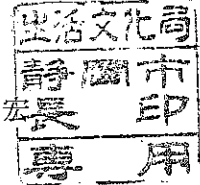 生活文化局
静岡市
宏長印
専用